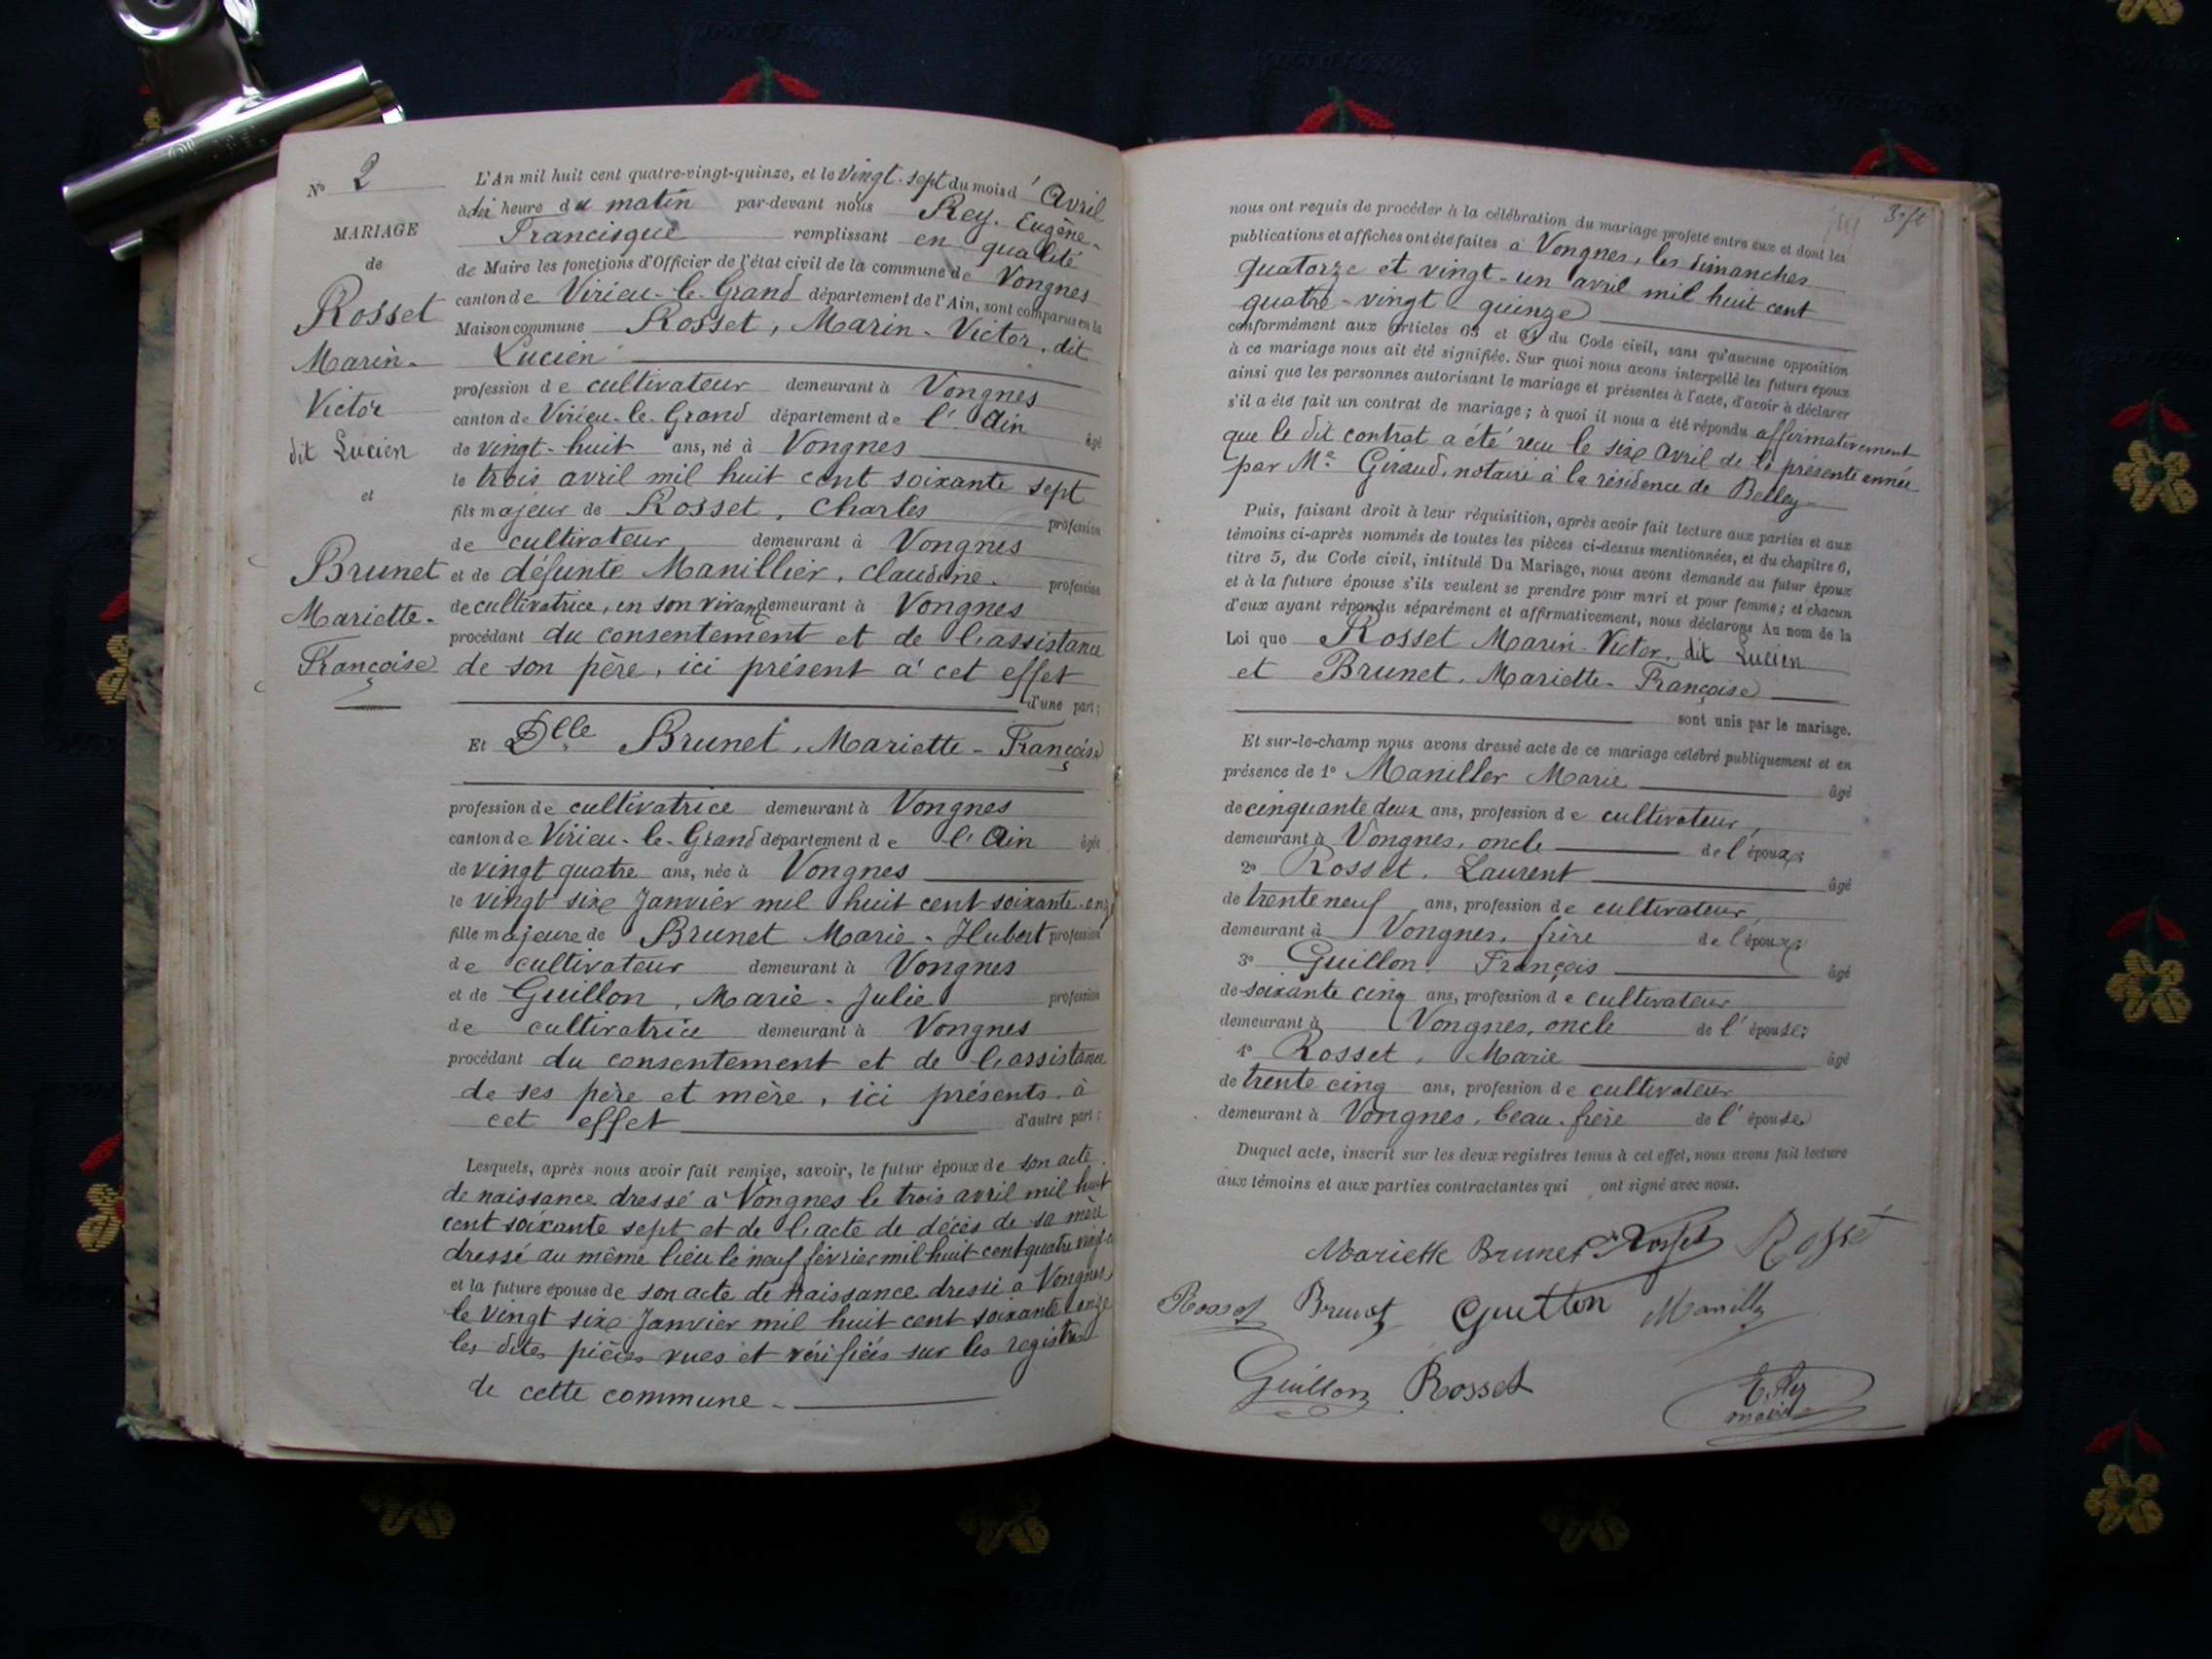 N° 2
MARIAGE
de
Rosset
Marin-
Victor
dit Lucien
et
Brunet
Mariette-
Françoise
L'An mil huit cent quatre-vingt-quinze, et le vingt-sept du mois d'Avril
à dix heure du matin par-devant nous Rey, Eugène-
Francisque remplissant en qualité
de Maire les fonctions d'Officier de l'état civil de la commune de Vongnes
canton de Virieu-le-Grand département de l'Ain, sont comparus en la
Maison commune Rosset, Marin-Victor, dit
Lucien
profession de cultivateur demeurant à Vongnes
canton de Virieu-le-Grand département de l'Ain âgé
de vingt-huit ans, né à Vongnes
le trois avril mil huit cent soixante sept
fils majeur de Rosset, Charles profession
de cultivateur demeurant à Vongnes
et de défunte Manillier, Claudine. profession
de cultivatrice, en son vivant demeurant à Vongnes
procédant du consentement et de l'assistance
de son père, ici présent à cet effet
d'une part;
Et Dlle Brunet, Mariette-Françoise
profession de cultivatrice demeurant à Vongnes
canton de Virieu-le-Grand département de l'Ain âgée
de vingt quatre ans, née à Vongnes
le vingt six Janvier mil huit cent soixante-onze
fille majeure de Brunet Marie-Hubert profession
de cultivateur demeurant à Vongnes
et de Guillon, Marie-Julie profession
de cultivatrice demeurant à Vongnes
procédant du consentement et de l'assistance
de ses père et mère, ici présents, à
cet effet d'autre part;
Lesquels, après nous avoir fait remise, savoir, le futur époux de son acte
de naissance dressé à Vongnes le trois avril mil huit
cent soixante sept et de l'acte de décès de sa mère
dressé au même lieu le neuf février mil huit cent quatre vingt
et la future épouse de son acte de naissance dressé à Vongnes
le vingt six Janvier mil huit cent soixante onze
les dites pièces vues et vérifiées sur les registres
de cette commune.
nous ont requis de procéder à la célébration du mariage projeté entre eux et dont les
publications et affiches ont été faites à Vongnes, les dimanches
quatorze et vingt-un avril mil huit cent
quatre-vingt quinze
conformément aux articles 63 et 64 du Code civil, sans qu'aucune opposition
à ce mariage nous ait été signifiée. Sur quoi nous avons interpellé les futurs époux
ainsi que les personnes autorisant le mariage et présentes à l'acte, d'avoir à déclarer
s'il a été fait un contrat de mariage; à quoi il nous a été répondu affirmativement
que le dit contrat a été reçu le six avril de la présente année
par Me Giraud, notaire à la résidence de Belley
Puis, faisant droit à leur réquisition, après avoir fait lecture aux parties et aux
témoins ci-après nommés de toutes les pièces ci-dessus mentionnées, et du chapitre 6,
titre 5, du Code civil, intitulé Du Mariage, nous avons demandé au futur époux
et à la future épouse s'ils veulent se prendre pour mari et pour femme; et chacun
d'eux ayant répondu séparément et affirmativement, nous déclarons Au nom de la
Loi que Rosset Marin-Victor, dit Lucien
et Brunet, Mariette-Françoise
sont unis par le mariage.
Et sur-le-champ nous avons dressé acte de ce mariage célébré publiquement et en
présence de 1° Maniller Marie âgé
de cinquante deux ans, profession de cultivateur,
demeurant à Vongnes, oncle de l'époux;
2° Rosset, Laurent âgé
de trente neuf ans, profession de cultivateur,
demeurant à Vongnes, frère de l'époux;
3° Guillon, François âgé
de soixante cinq ans, profession de cultivateur
demeurant à Vongnes, oncle de l'épouse;
4° Rosset, Marie âgé
de trente cinq ans, profession de cultivateur
demeurant à Vongnes, beau-frère de l'épouse
Duquel acte, inscrit sur les deux registres tenus à cet effet, nous avons fait lecture
aux témoins et aux parties contractantes qui ont signé avec nous.
Mariette Brunet Rosset Rosset
Rosset Brunet Guillon Manillier
Guillon Rosset E. Rey
maire